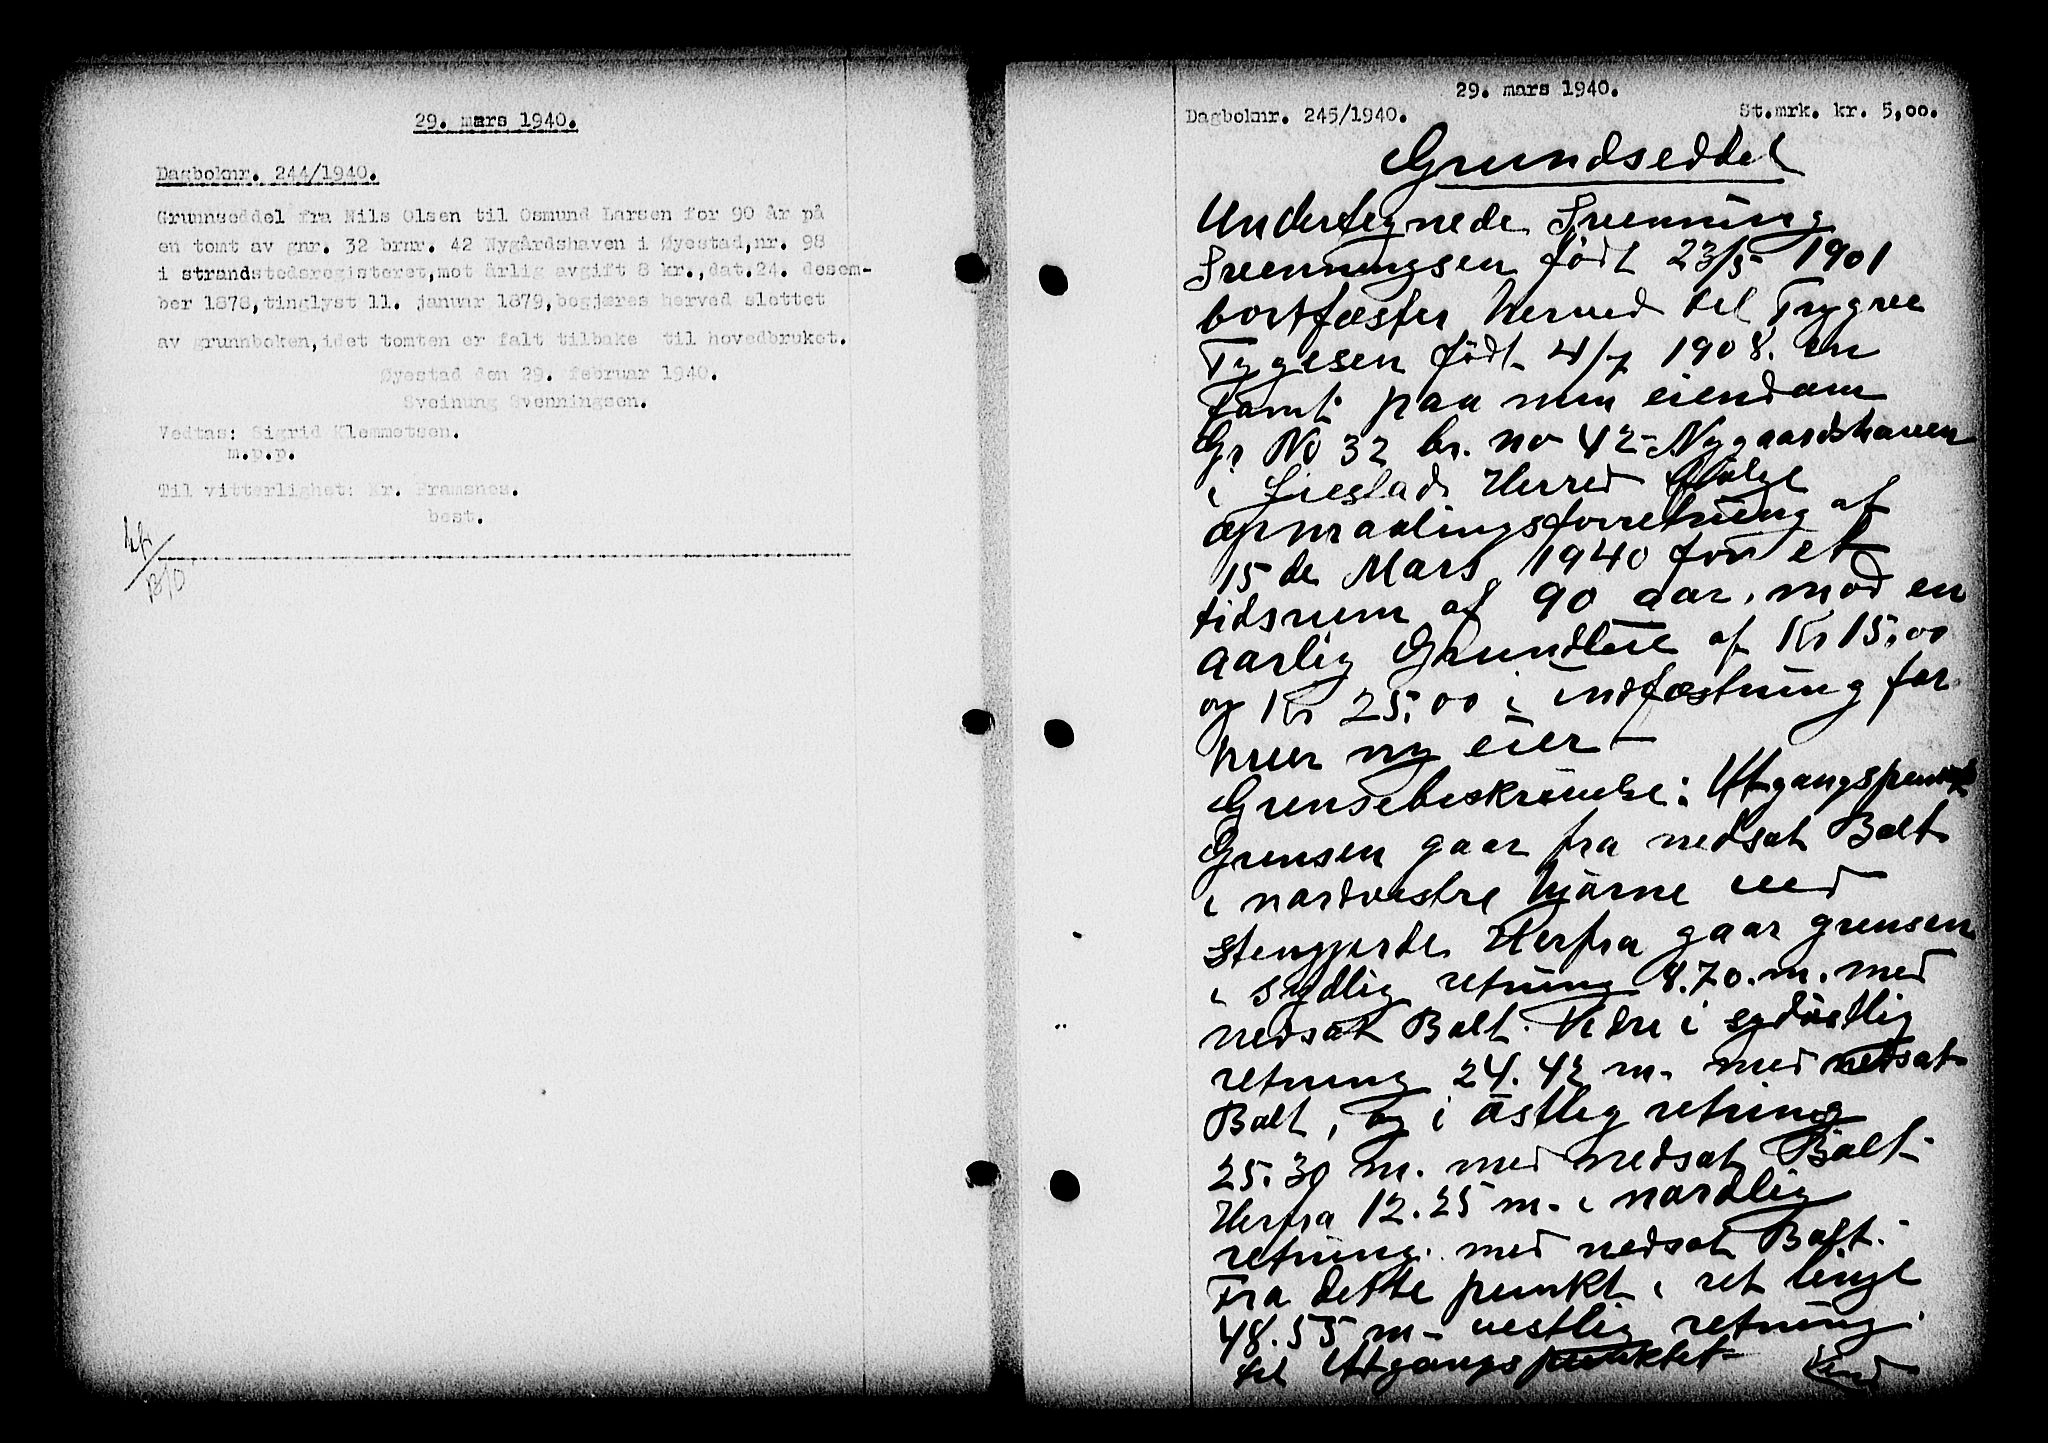 29. mars 1940.
Dagboknr. 244/1940.
Grunnseddel fra Nils Olsen til Osmund Larsen for 90 år på
en tomt av gnr. 32 brnr. 42 Nygårdshaven i Øyestad,nr. 98
i strandstedsregisteret,mot årlig avgift 8 kr.,dat.24. desem-
ber 1878,tinglyst 11. januar 1879,begjæres herved slettet
av grunnboken,idet tomten er falt tilbake til hovedbruket.
Øyestad den 29. februar 1940.
Sveinung Svenningsen.
Vedtas: Sigrid Klemmetsen.
m.p.p.
Til vitterlighet: Kr. Framsnes.
best.
29. mars 1940.
Dagboknr. 245/1940. St.mrk. kr. 5,00.
Grundseddel
Undertegnede Svenning
Svenningsen født 23/5 1901
bortfæster herved til Trygve
Tygesen født 4/7 1908. en
tomt paa min eiendom
Gr No 32 br. no 42 Nygaardshaven
i Øiestad Herred ifølge
opmaalingsforretning af
15 de Mars 1940 for et
tidsrum af 90 aar, mod en
aarlig Grundleie af Kr 15,00
og Kr 25,00 i indfæstning for
hver ny eier -
Grensebeskrivelse: Utgangspunkt
Grensen gaar fra nedsat Bolt
i nordvestre hjørne ved
stengjerde. Herfra gaar grensen
i sydlig retning 8.70. m. med
nedsat Bolt. Vidre i sydøstlig
retning 24.42 m. med nedsat
Bolt, og i østlig retning
25.30 m. med nedsat Bolt -
Herfra 12.25 m. i nordlig
retning. med nedsat Bolt.
Fra dette punkt i ret linje
48.55 m - vestlig retning.
til Utgangspunktet - Vend